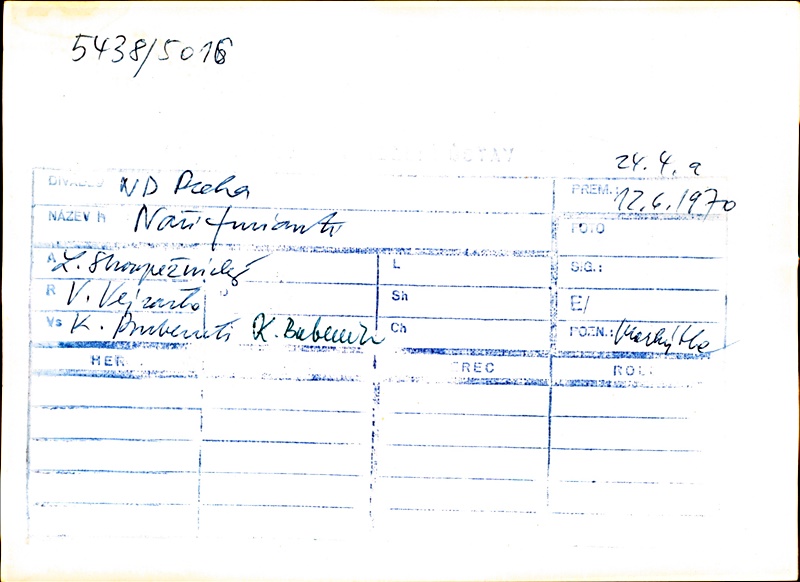 5438/5016
ÚSTAV
24.4. a
DIVADLO ND Praha PREM.: 12.6.1970
NÁZEV H Naši furianti FOTO
A L. Stroupežnický L SIG.:
R V. Vejražka Sh E/
Vs K. Bubeník K. Bubeník Ch POZN.:
HER EREC ROL